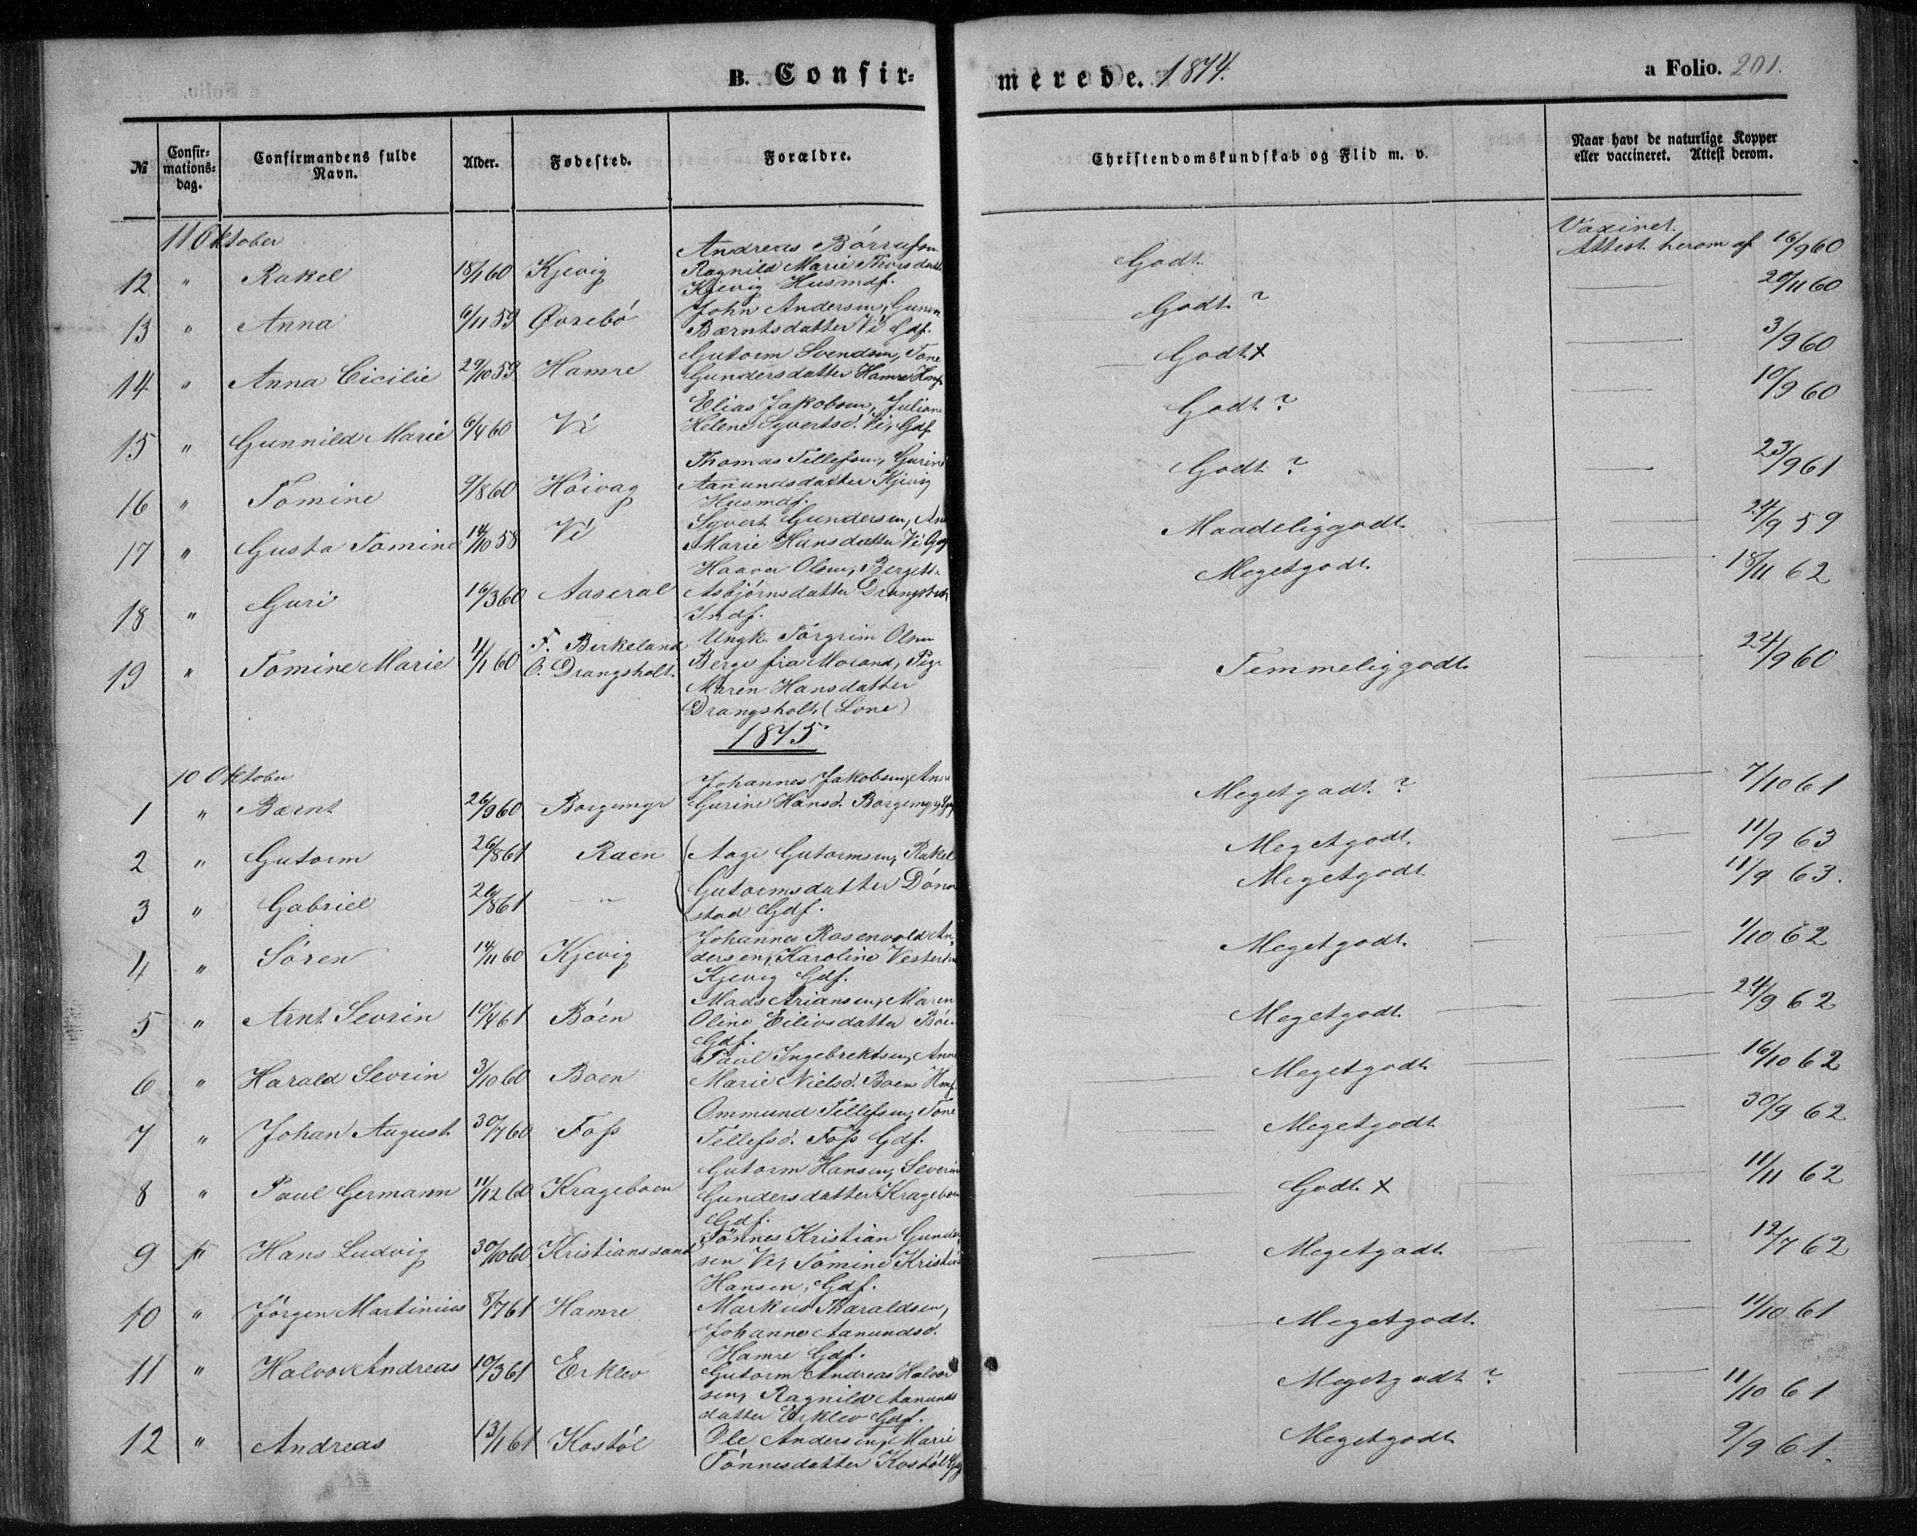 B. Confir-
merede. 1874.
a Folio. 201.
№
Confir-
mations-
dag.
Confirmandens fulde
Navn.
Alder.
Fødested.
Forældre.
Christendomskundskab og Flid m. v.
Naar havt de naturlige Kopper
eller vaccineret. Attest derom.
11 Oktober
Vaxinet.
12 " Rakel 18/1 60 Kjevig Andreas
Ragnild Marie
Kjevig Husmdf. Godt Attest herom af 16/9 60
13 " Anna 6/11 59 Øvrebö John Andersen,
Bærntsdatter Vé Gdf. Godt ? 20/11 60
14 " Anna Cicilie 29/10 59 Hamre Gutorm Svendsen, Tone
Gundersdatter Hamre Godt x 3/9 60
15 " Gunnild Marie 6/4 60 Vé Elias Jakobsen, Juliane
Helene Syvertsd. Vé, Gdf. Godt ? 10/9 60
16 " Tomine 9/8 60 Höivag Thomas Tellefsen, Gurine
Aanundsdatter Kjevig
Husmdf. Godt ? 23/9 61
17 " Gusta Tomine 14/10 58 Vé Syvert Gundersen,
Marie Hansdatter Vé, Maadeliggodt 24/9 59
18 " Guri 16/3 60 Aaseral Haaver Olsen,
Asbjørnsdatter
Indf. Megetgodt 18/11 62
19 " Tomine Marie 1/1 60 F. Birkeland
O. Drangsholt. Ungk. Torgrim Olsen
Berge fra Moland, Pige
Maren Hansdatter
Drangsholt (Lone) Temmeliggodt 24/9 60
1875
10 Oktober
1 " Bærnt 26/9 60 Borgemyr Johannes Jakobsen,
Gurine Hansd. Borgemyr, Megetgodt ? 7/10 61
2 " Gutorm 26/8 61 Raen Aage Gutormsen, Rakel Megetgodt 11/9 63
3 " Gabriel 26/8 61 - " - Gutormsdatter Dön
stad Gdf. Megetgodt 11/9 63.
4 " Sören 14/11 60 Kjevig Johannes Rosenvold An-
dersen, Karoline
Kjevig Gdf. Megetgodt 1/10 62
5 " Arnt Sevrin 10/4 61 Böen Mads Ariansen, Maren
Oline Eilivsdatter Böen
Gdf. Megetgodt 24/9 62
6 " Harald Sevrin 3/10 60 Boen Paul Ingebrektsen, Anne
Marie Nielsd. Boen Hmf. Megetgodt 16/10 62
7 " Johan August 30/7 60 Foss Ommund Tellefsen, Tone
Tellefsd. Foss Gdf. Megetgodt 30/9 62
8 " Paul Germann 11/12 60 Krageboen Gutorm Hansen, Severine
Gundersdatter Krageboen
Gdf. Godt x 11/11 62
9 Hans Ludvig 30/10 60 Kristianssand Tönnes Kristian Gunder
sen Ve, Tomine Kristine
Hansen, Gdf. Megetgodt 12/7 62
10 " Jørgen Martinius 8/7 61 Hamre Markus Haraldsen,
Johanne Aanundsd.
Hamre Gdf. Megetgodt 11/10 61
11 " Halvor Andreas 10/3 61 Erklev Gutorm Andreas Halvor
sen, Ragnild Aanunds
datter Erklev Gdf. Megetgodt ? 11/10 61
12 " Andreas 13/1 61 Kostöl Ole Andersen, Marie
Tönnesdatter Kostöl Megetgodt 9/9 61.